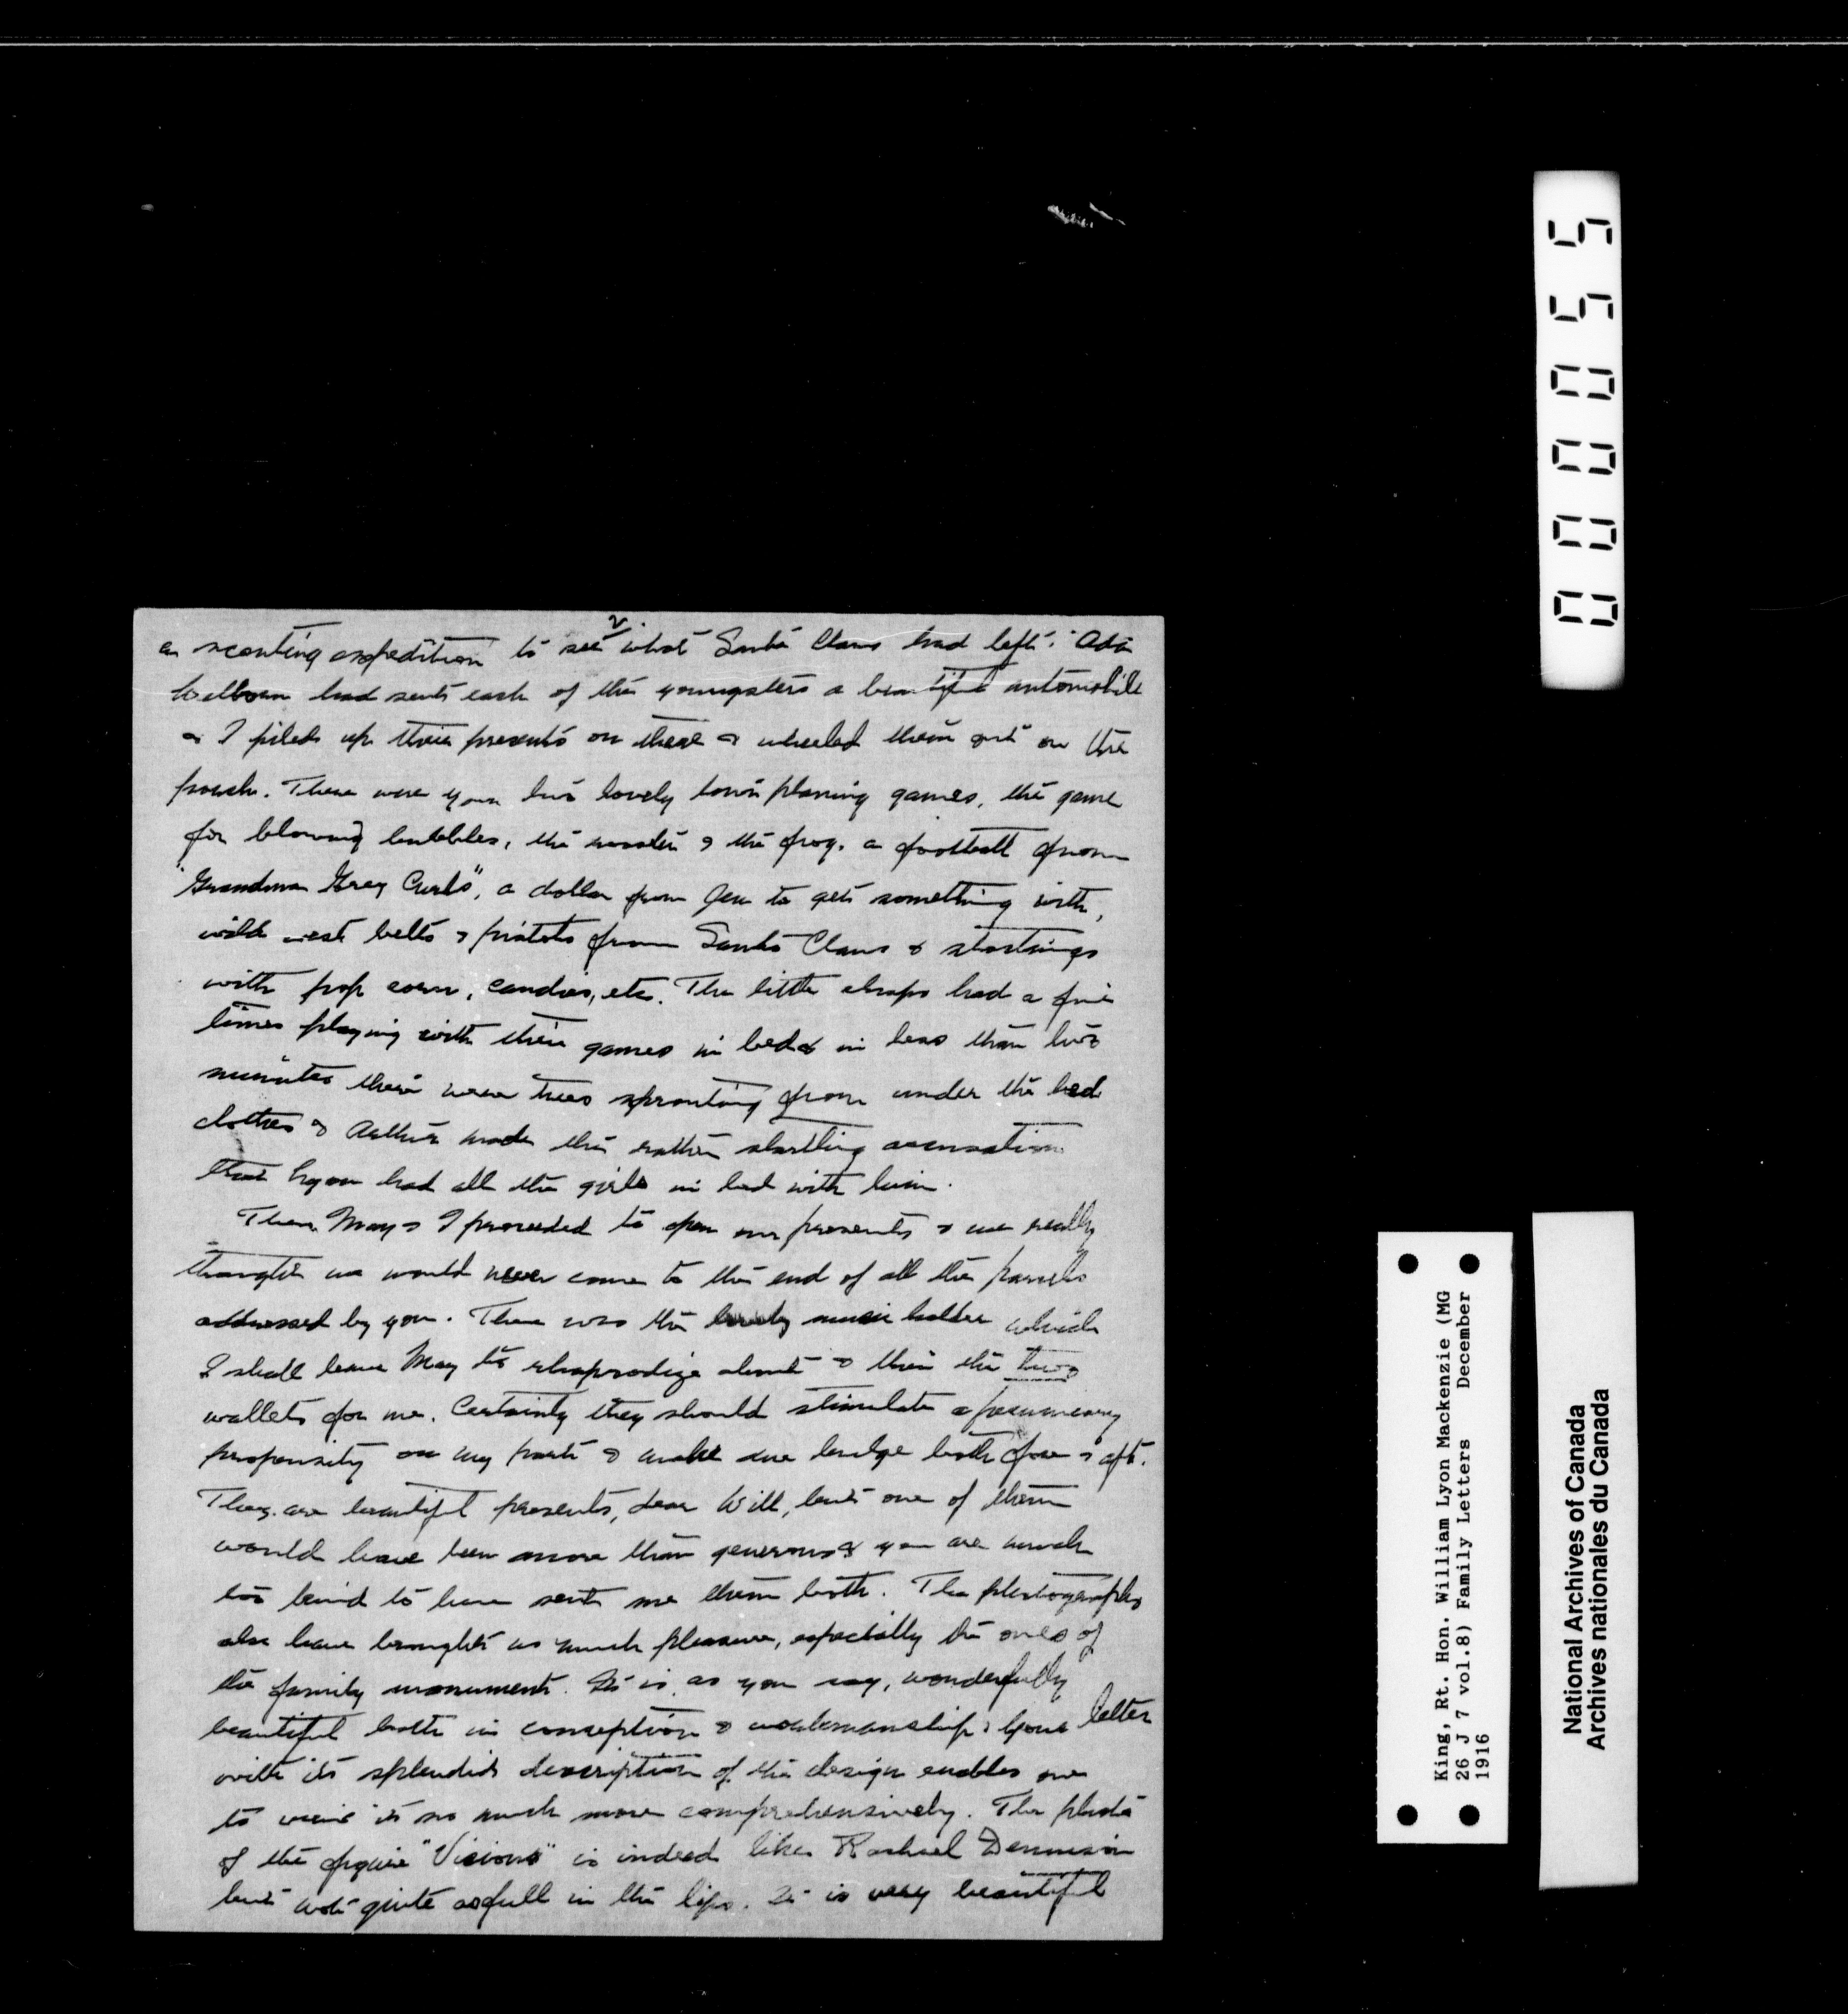 2.
a scouting expedition to see what Santa Claus had left. Ada
had sent each of the youngsters a beautiful automobile
& I piled up their presents on these & wheeled them out on the
porch. There were your two lovely town planning games, the game
for blowing bubbles, the rooster & the frog, a football from
"Grandma Gray Curls", a dollar from Jen to get something with,
wild west belts & pistols from Santa Claus & stockings
with pop corn, candies, etc. The little chaps had a fine
time playing with their games in bed & in less than two
minutes there were trees sprouting from under the bed
clothes & Arthur made the rather startling accusation
that Lyon had all the girls in bed with him.
Then May & I proceeded to open our presents & we really
thought we would never come to the end of all the parcels
addressed by you. There was the lovely music holder which
I shall leave May to rhapsodize about & then the two
wallets for me. Certainly they should stimulate a pecuniary
propensity on my part & make me bulge both fore & aft.
They are beautiful presents, dear Will, but one of them
would have been more than generous & you are much
too kind to have sent me them both. The photographs
also have brought us much pleasure, especially the ones of
the family monument. It is, as you say, wonderfully
beautiful both in conception & workmanship & your letter
with its splendid description of the design enables one
to view it so much more comprehensively. The photo
of the figure "Visions" is indeed like Rachael Dennison
but not quite as full in the lips. It is very beautiful
000055
King, Rt. Hon. William Lyon Mackenzie (MG
26 J 7 vol.8) Family Letters December
1916
National Archives of Canada
Archives nationales du Canada